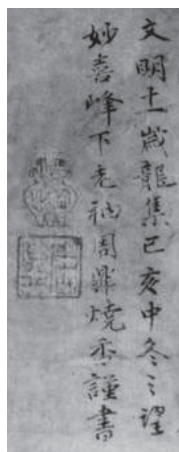 文明十一歳龍集己亥中冬之望
妙喜峰下老衲周鼎燒香謹書